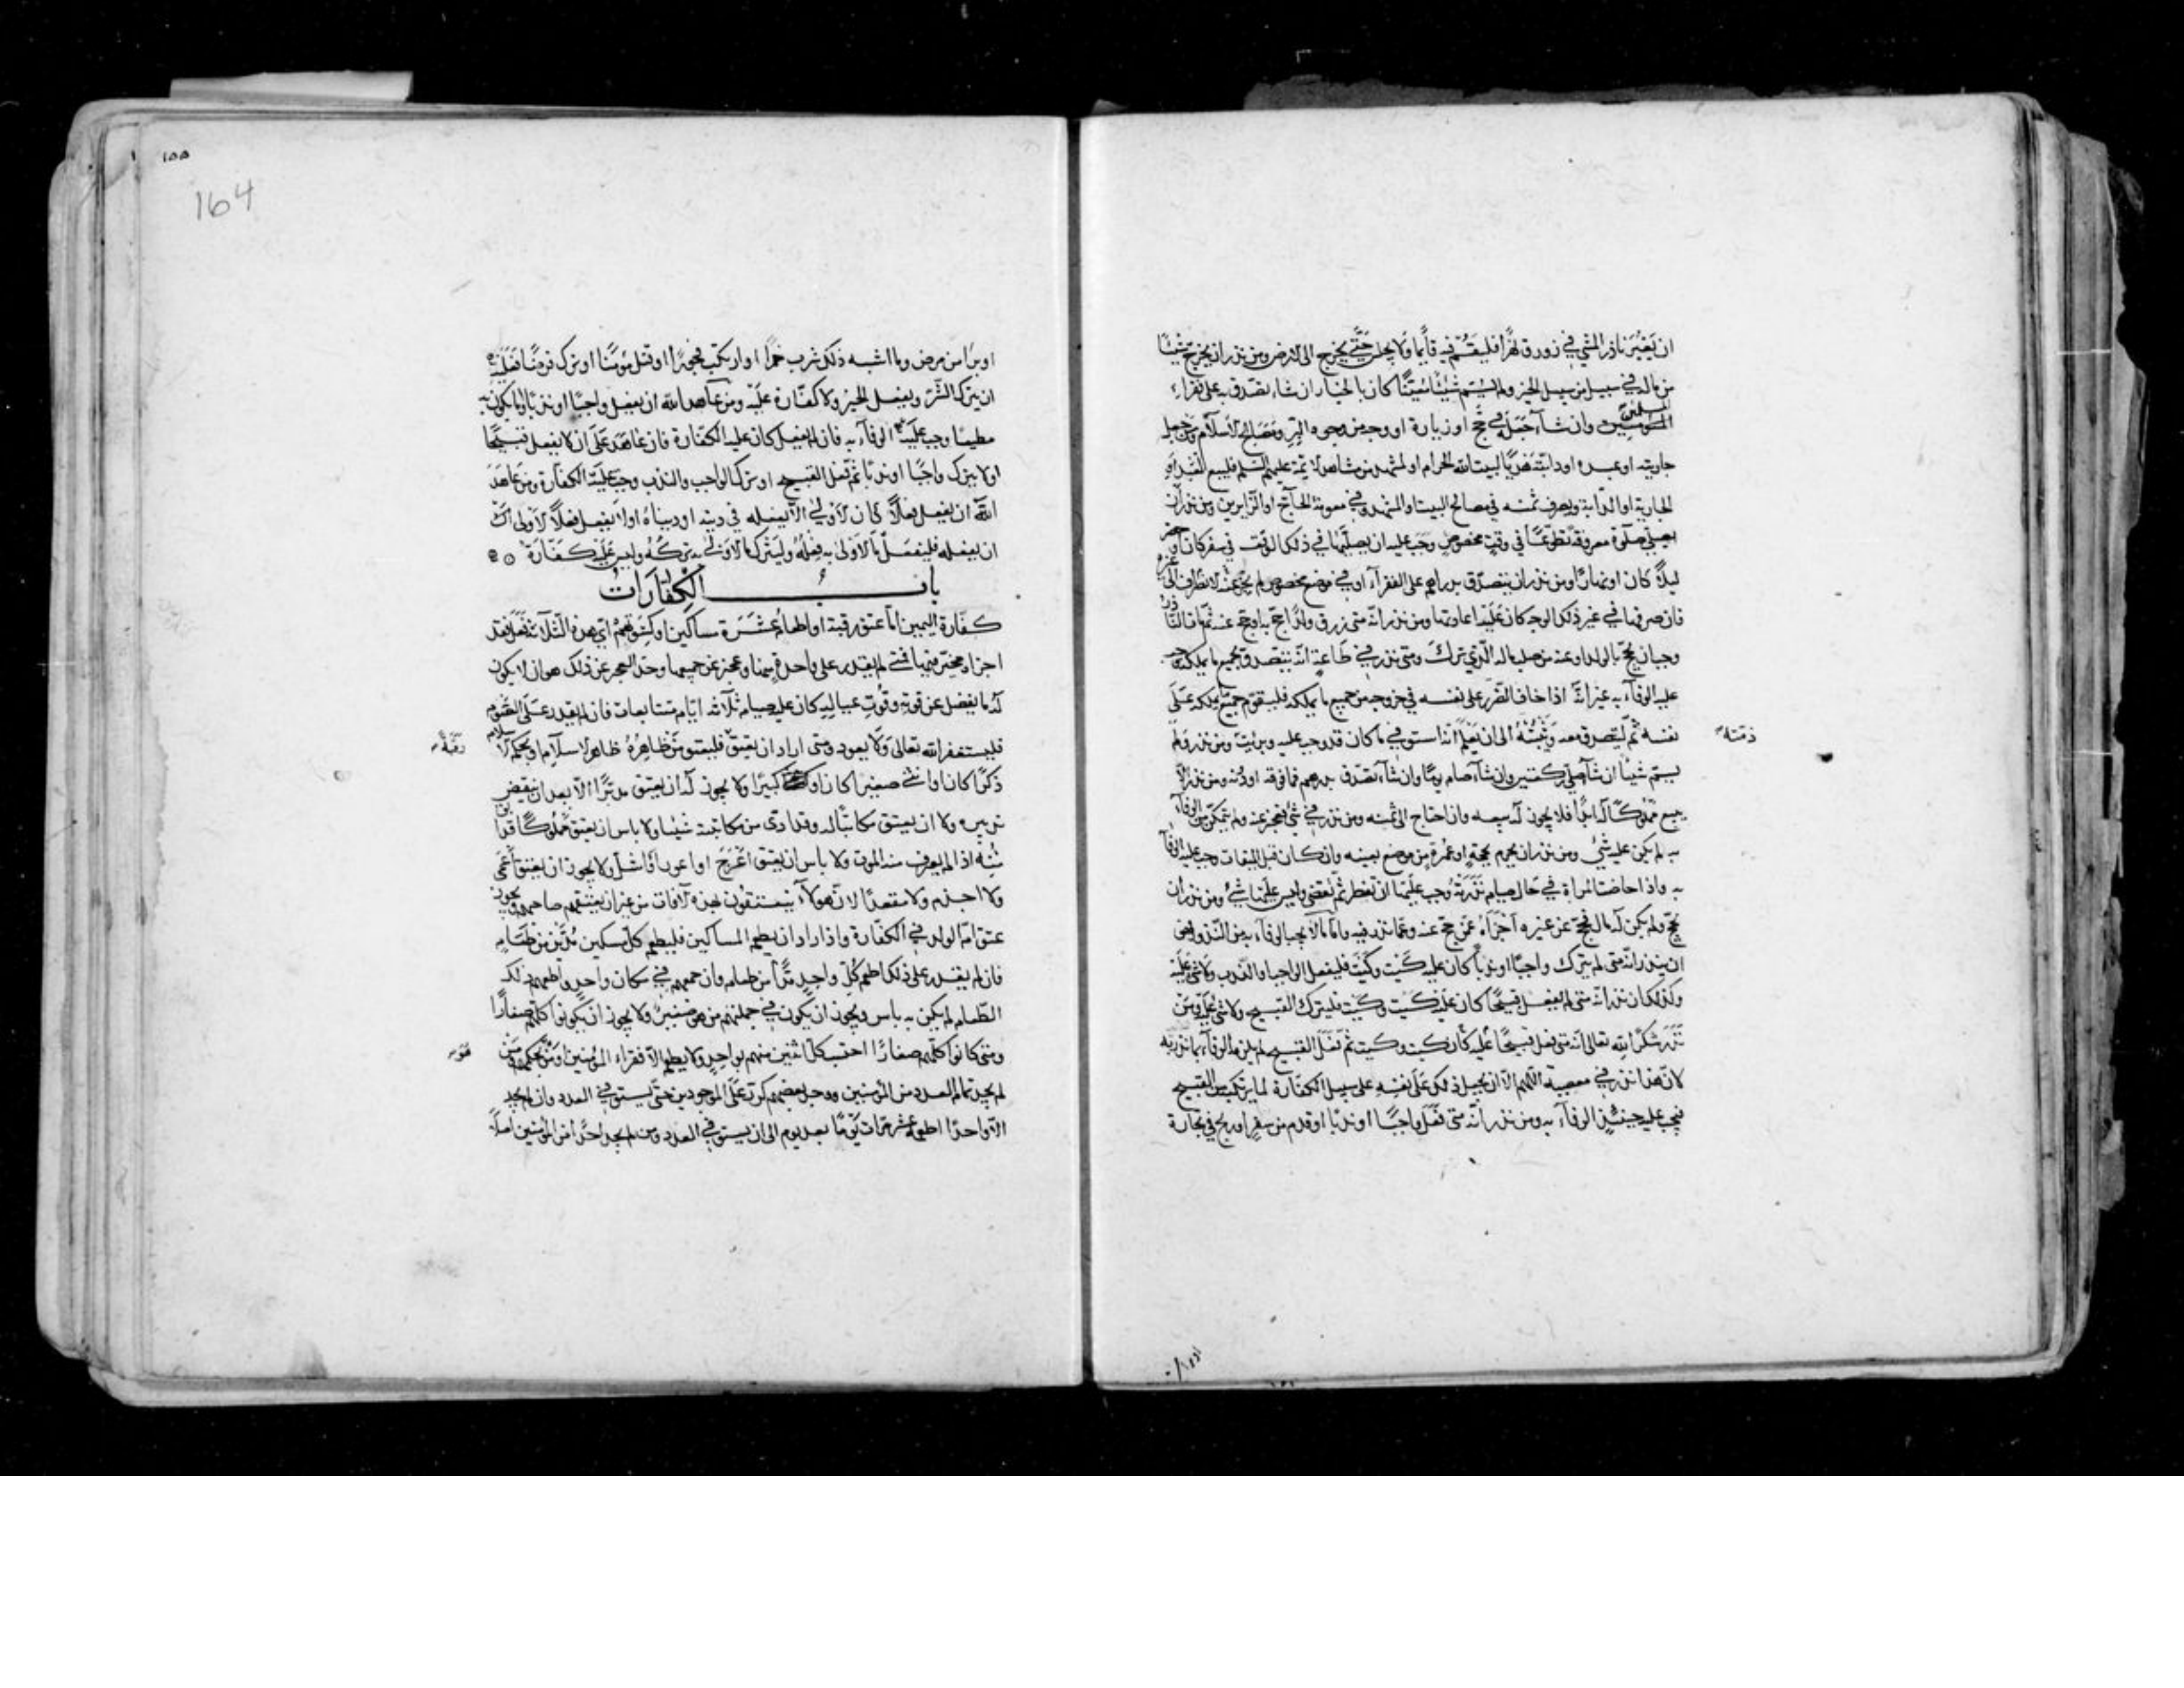 ان يعبر ناذر المشي في زورق نهرا فليقم فيه قايما ولا يجلس حتى يخرج الى الارض ومن نذر ان يخرج شيئا
من ماله في سبيل من سبل الخير ولم يسم شيئا معينا كان بالخيار ان شاء تصدق به على فقراء
المؤمنين وان شاء جعله في حج او زيارة او وجه من وجوه البر ومصالح الاسلام ومن جعل
المسلمين
جاريته او عبده او دابته هديا لبيت الله الحرام او لمشهد من مشاهد الائمة عليهم السلم فليبع العبد او
الجارية او الدابة وليصرف ثمنه في مصالح البيت او المشهد وفي معونة الحاج او الزايرين ومن نذر ان
يصلي صلوة معروفة تطوعا في وقت مخصوص وجب عليه ان يصليها في ذلك الوقت في سفر كان او حضر
ليلا كان او نهارا ومن نذر ان يتصدق بدراهم على الفقراء او في موضع مخصوص لم يجز عنه الانصراف الى غيره
فان صرفها في غير ذلك الوجه كان عليه اعادتها ومن نذر انه متى رزق ولدا حج به او حج عنه ثم مات الناذر
وجب ان يحج بالولد او عنه من صلب ماله الذي ترك ومتى نذر في طاعة انه يتصدق بجميع ما يملكه وجب
عليه الوفاء به غير انه اذا خاف الضرر على نفسه في خروجه من جميع ما يملكه فليقوم جميع ما يملكه على
نفسه ثم ليتصدق معه ويثبته الى ان يعلم انه استوفى ما كان قد وجب عليه وبرئت ومن نذر ولم
ذمته
يسم شيئا ان شاء صلى ركعتين وان شاء صام يوما وان شاء تصدق بدرهم فما فوقه او دونه ومن نذر الا
يبيع مملوكا له ابدا فلا يجوز له بيعه وان احتاج الى ثمنه ومن نذر في شئ فعجز عنه ولم يتمكن من الوفاء
به لم يكن عليه شئ ومن نذر ان يحرم بحجة او عمرة من موضع بعينه وان كان قبل الميقات وجب عليه الوفاء
به واذا حاضت المراة في حال صيام نذرته وجب عليها ان تفطر ثم تقضي وليس عليها شئ ومن نذر ان
يحج ولم يكن له مال فحج عن غيره اجزاه عمن حج عنه وعما نذر فيه واما ما لا يجب الوفاء به من النذر فهو
ان ينذر انه متى لم يترك واجبا او ندبا كان عليه كيت وكيت فليفعل الواجب او الندب ولا شئ عليه
وكذلك ان نذر انه متى لم يفعل قبيحا كان عليه كيت وكيت فليترك القبيح ولا شئ عليه ومن
نذر شكرا لله تعالى انه متى فعل قبيحا عليه كان كيت وكيت ثم فعل القبيح لم يلزمه الوفاء بما نذر به
لان هذا نذر في معصية اللهم الا ان يجعل ذلك على نفسه على سبيل الكفارة لما يرتكبه من القبيح
فيجب عليه حينئذ الوفاء به ومن نذر انه متى فعل واجبا او ندبا او قدم من سفر او ربح في تجارة
١٥٥
164
او برا من مرض وما اشبه ذلك شرب خمرا او ارتكب فجورا او قتل مؤمنا او ترك فرضا فعليه
ان يترك الشر ويفعل الخير ولا كفارة عليه ومن عاهد الله ان يفعل واجبا او ندبا او ما يكون به
مطيعا وجب عليه الوفاء به فان لم يفعل كان عليه الكفارة فان عاهد على ان لا يفعل قبيحا
او لا يترك واجبا او ندبا ثم فعل القبيح او ترك الواجب والندب وجب عليه الكفارة ومن عاهد
الله ان يفعل فعلا كان الاولى الا يفعله في دينه او دنياه او لا يفعل فعلا الاولى له
ان يفعله فليفعل ما الاولى به فعله وليترك ما الاولى به تركه وليس عليه كفارة
باب الكفارات
كفارة اليمين اما عتق رقبة او اطعام عشرة مساكين او كسوتهم اي هذه الثلاثة فعل فقد
اجزاه مخير فيها فمتى لم يقدر على واحدة منها وعجز عن جميعها وحد العجز عن ذلك هو ان لا يكون
له ما يفضل عن قوته وقوت عياله كان عليه صيام ثلاثة ايام متتابعات فان لم يقدر على الصوم
فليستغفر الله تعالى ولا يعود ومتى اراد ان يعتق فليعتق من ظاهره ظاهر الاسلام او بحكم الاسلام
رقبة
ذكرا كان او انثى صغيرا كان او كبيرا ولا يجوز له ان يعتق مدبرا الا بعد ان ينقض
تدبيره ولا ان يعتق مكاتبا له وقد ادى من مكاتبته شيئا ولا باس ان يعتق مملوكا قد ابق
منه اذا لم يعرف منه الموت ولا باس ان يعتق اعرج او اعور او اشل ولا يجوز ان يعتق اعمى
ولا اجذم ولا مقعدا لان هولاء ينعتقون بهذه الافات من غير ان يعتقهم صاحبهم ويجوز
عتق ام الولد في الكفارة واذا اراد ان يطعم المساكين فليطعم كل مسكين مدين من طعام
فان لم يقدر على ذلك اطعم كل واحد مدا من طعام وان جمعهم في مكان واحد واطعمهم ذلك
الطعام لم يكن به باس ويجوز ان يكون في جملتهم من هو صغير ولا يجوز ان يكونوا كلهم صغارا
ومتى كانوا كلهم صغارا احتسب كل اثنين منهم بواحد ولا يطعم الا فقراء المؤمنين او من بحكمهم ومن
لم يجد تمام العدد من المؤمنين ووجد بعضهم كرر على الموجودين حتى يستوفي العدد وان لم يجد
الا واحدا اطعمه عشر مرات يوما بعد يوم الى ان يستوفي العدد ومن لم يجد احدا من المؤمنين اصلا